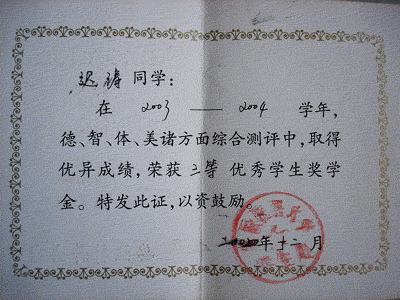 迟涛同学:
在 2003 —— 2004 学年,
德、智、体、美诸方面综合测评中,取得
优异成绩,荣获三等优秀学生奖学
金。特发此证,以资鼓励。
年十二月